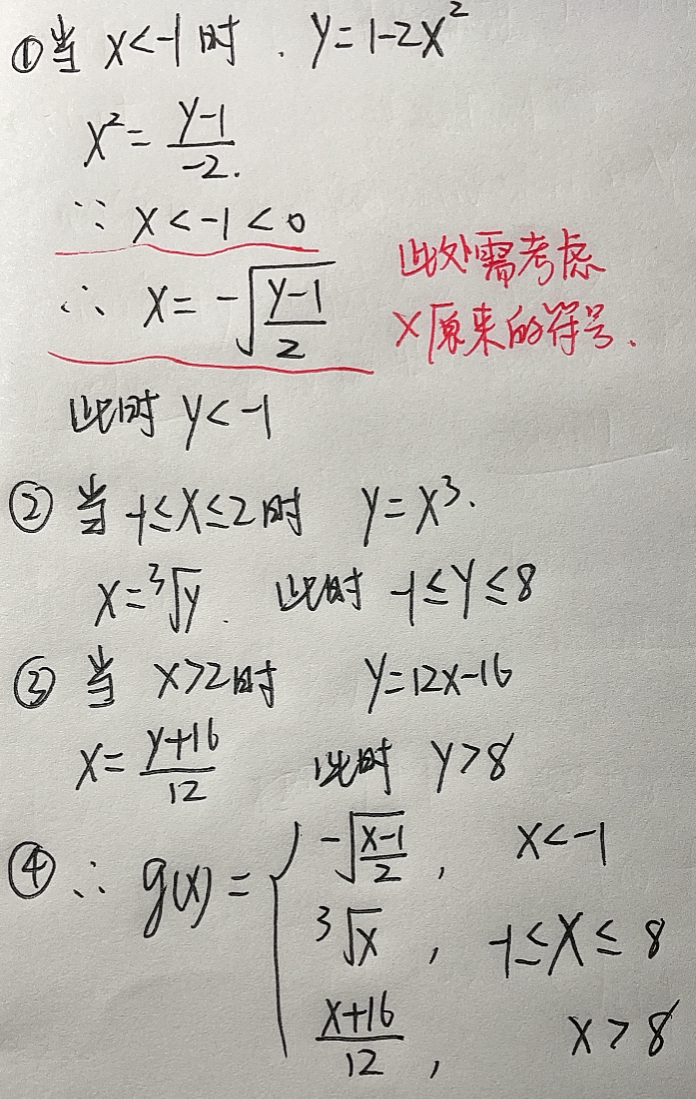 ①当 x<-1时. y=1-2x²
x²=(y-1)/(-2).
∵ x<-1<0
∴ x=-√((y-1)/2)
此处需考虑
x原来的符号.
此时 y<-1
② 当 -1≤x≤2时 y=x³.
x=³√y. 此时 -1≤y≤8
③ 当 x>2时 y=12x-16
x=(y+16)/12 此时 y>8
④ ∴ g(x)={ -√((x-1)/2), x<-1
³√x, -1≤x≤8
(x+16)/12, x>8